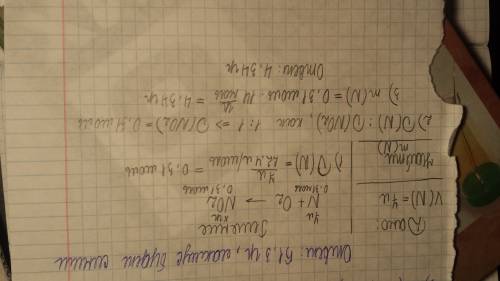 Ответ: 51,3 гр, лакмус будет синим
Дано:
V(N)=4л
Найти:
m(N)
Решение
4л хгр
N + O2 → NO2
0.31моль 0.31моль
1) ν(N) = 4л / 22,4 л/моль = 0,31 моль
2) ν(N) : ν(NO2), как 1:1 => ν(NO2) = 0,31 моль
3) m(N) = 0,31 моль · 14 гр/моль = 4,34 гр.
Ответ: 4,34 гр